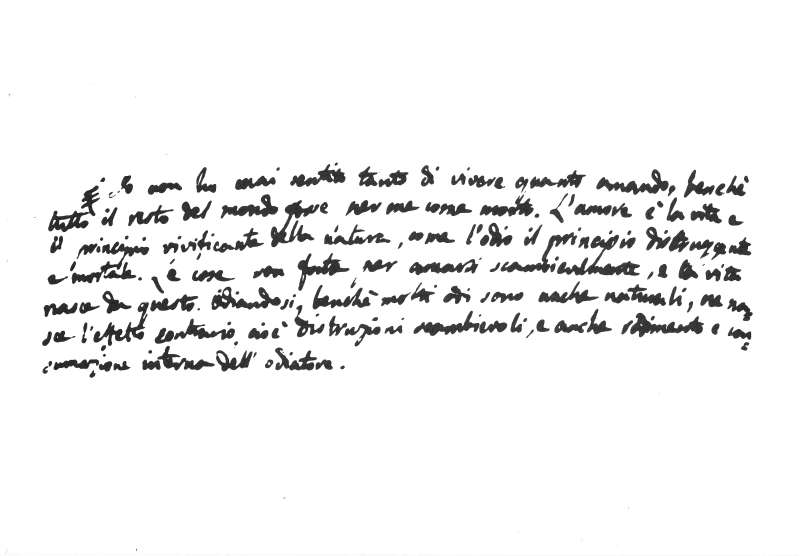 Io non ho mai sentito tanto di vivere quanto amando, benchè
tutto il resto del mondo fosse per me come morto. L'amore è la vita e
il principio vivificante della natura, come l'odio il principio distruggente
e mortale. Le cose son fatte per amarsi scambievolmente, e la vita
nasce da questo. Odiandosi, benchè molti odi sono anche naturali, ne na
sce l'effetto contrario, cioè distruzioni scambievoli, e anche rodimento e con
sumazione interna dell'odiatore.